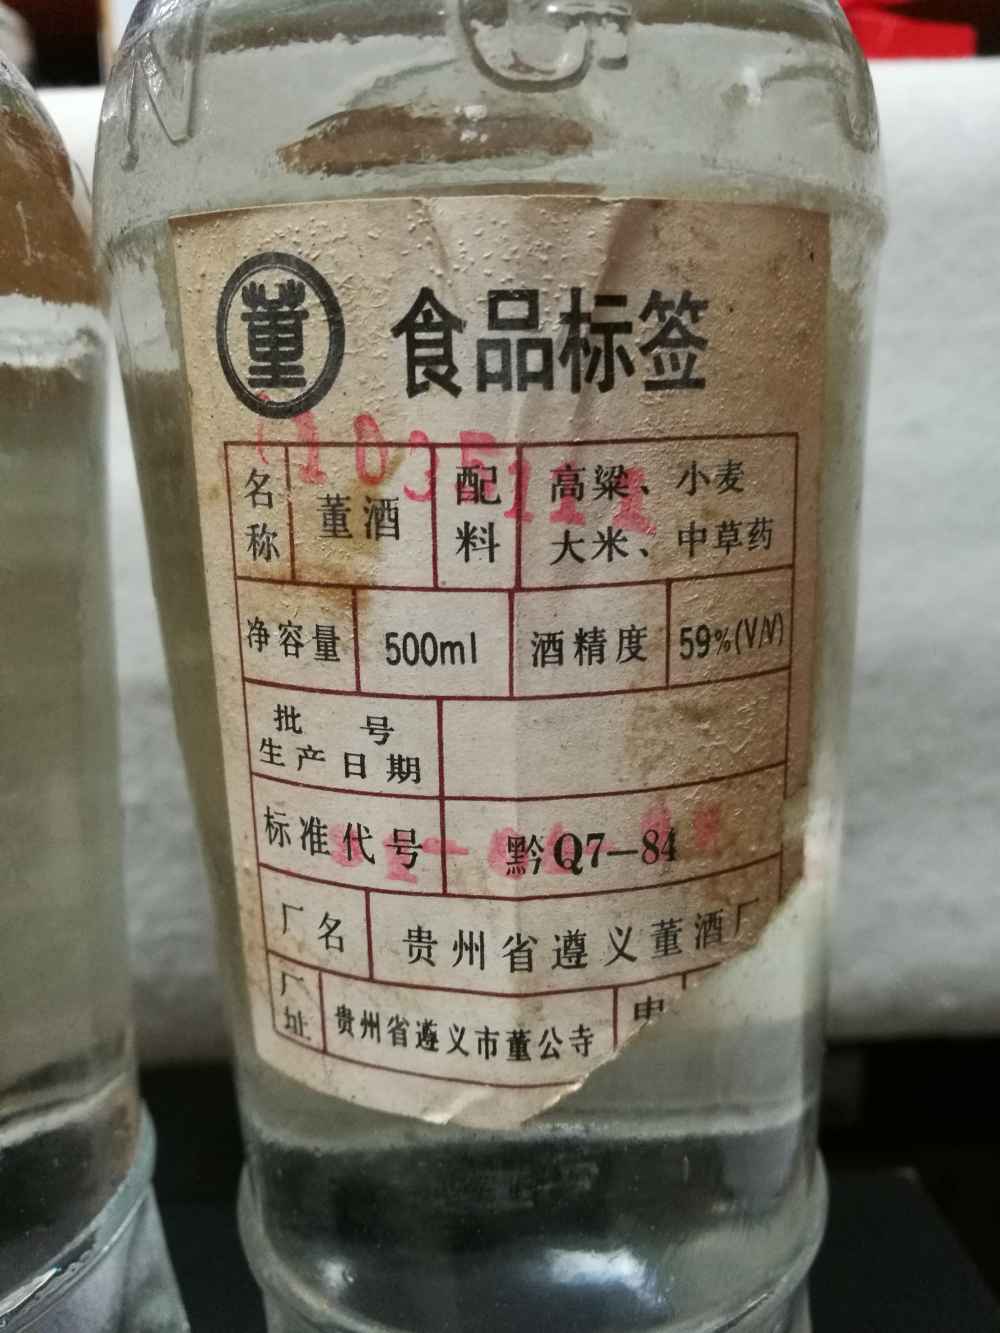 N G
董 食品标签
名称 董酒 配料 高粱、小麦
大米、中草药
净容量 500ml 酒精度 59%(V/V)
批号
生产日期
标准代号 黔Q7—84
厂名 贵州省遵义董酒厂
厂址 贵州省遵义市董公寺